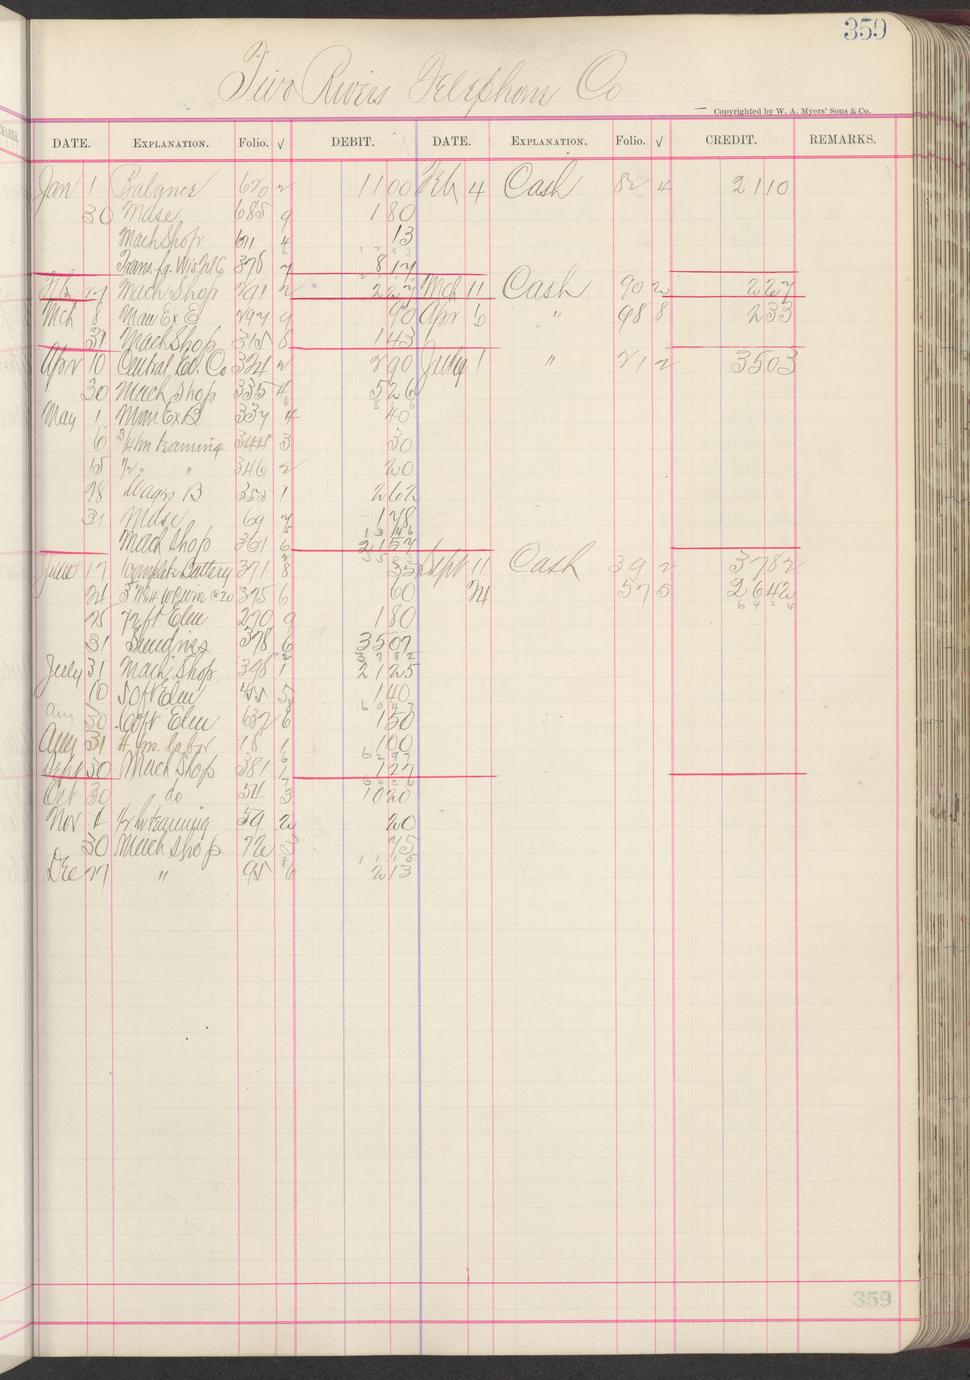 359
Two Rivers Telephone Co
Copyrighted by W. A. Myers' Sons & Co.
DATE. EXPLANATION. Folio. √ DEBIT. DATE. EXPLANATION. Folio. √ CREDIT. REMARKS.
Jan 1 Balance 620 2 1100 Feb 4 Cash 82 4 2110
30 Mdse 685 9 180
Mach Shop 611 4 13
Trans. fr. Wis Tel Co 378 7 817
Feb 27 Mach Shop 291 2 227 Mch 11 Cash 90 2 227
Mch 8 Man Ex 297 9 90 Apr 6 " 98 8 233
31 Mach Shop 315 8 143
Apr 10 Central El. Co 324 2 290 July 1 " 21 2 3503
30 Mach Shop 335 4 526
May 1 Man Ex B 337 4 40
6 teaming 344 3 30
15 1/2 " " 346 2 20
28 Wages B 353 1 262
31 Mdse 69 7 178
Mach Shop 361 6 2157
June 17 Complete Battery 371 8 35 Sept 11 Cash 39 2 3782
24 375 6 60 24 57 5 2642
25 72 ft Elm 270 9 180
31 Sundries 378 6 3507
July 31 Mach Shop 398 1 2125
10 50 ft Elm 455 5 140
Aug 30 60 ft Elm 632 6 150
Aug 31 4 hrs. labor 18 1 100
Sept 30 Mach Shop 381 1 127
Oct 30 do 54 3 1020
Nov 4 1/2 hr teaming 59 2 20
30 Mach Shop 72 45
Dec 27 " 95 6 213
359